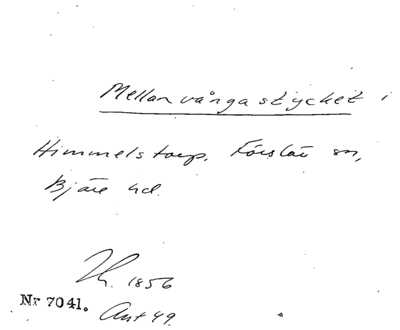 Mellanvångastycket i
Himmelstorp. Förslöv sn,
Bjäre hd.
Th. 1856
Nr 7041. Ant 49.